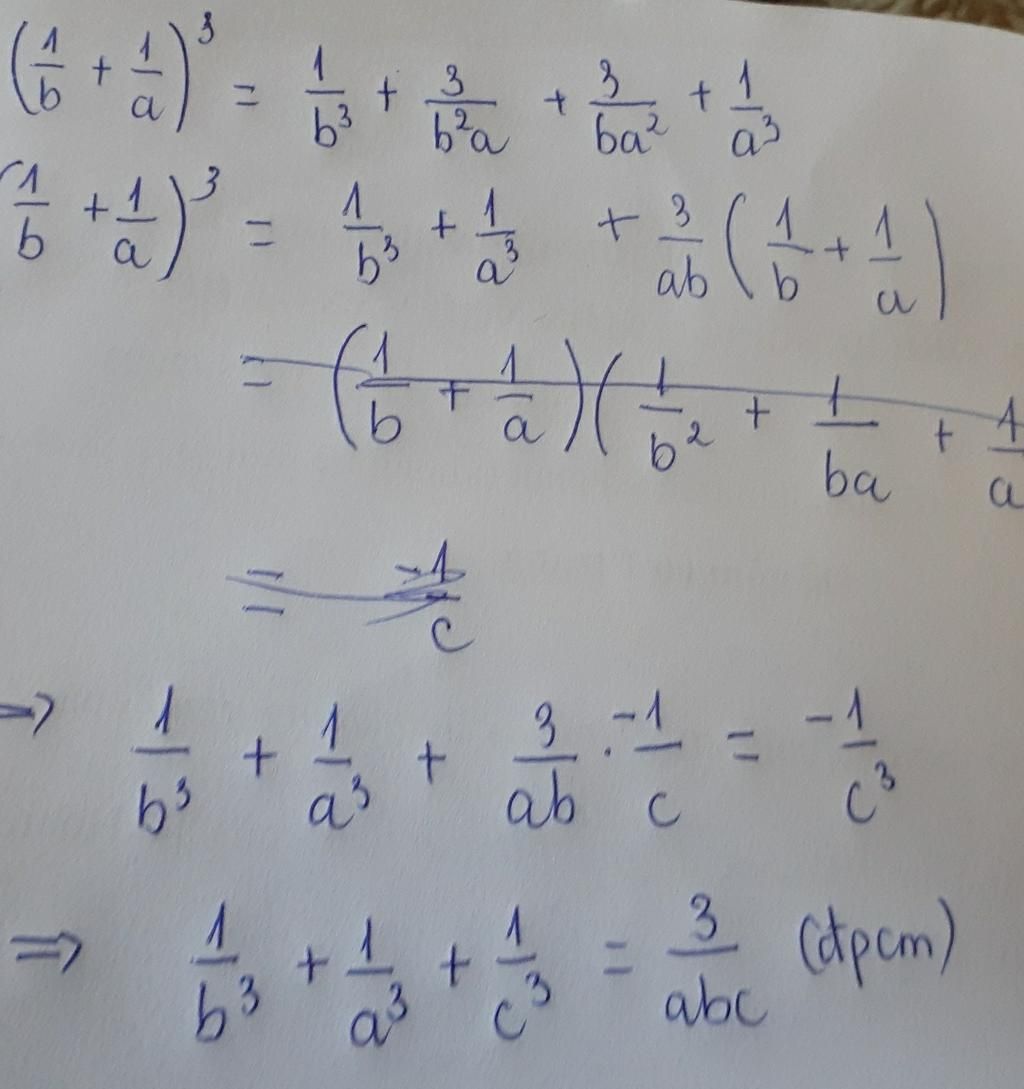 (1/b + 1/a)³ = 1/b³ + 3/b²a + 3/ba² + 1/a³
(1/b + 1/a)³ = 1/b³ + 1/a³ + 3/ab (1/b + 1/a)
= (1/b + 1/a)(1/b² + 1/ba + 1/a
= -1/c
=> 1/b³ + 1/a³ + 3/ab . -1/c = -1/c³
=> 1/b³ + 1/a³ + 1/c³ = 3/abc (đpcm)